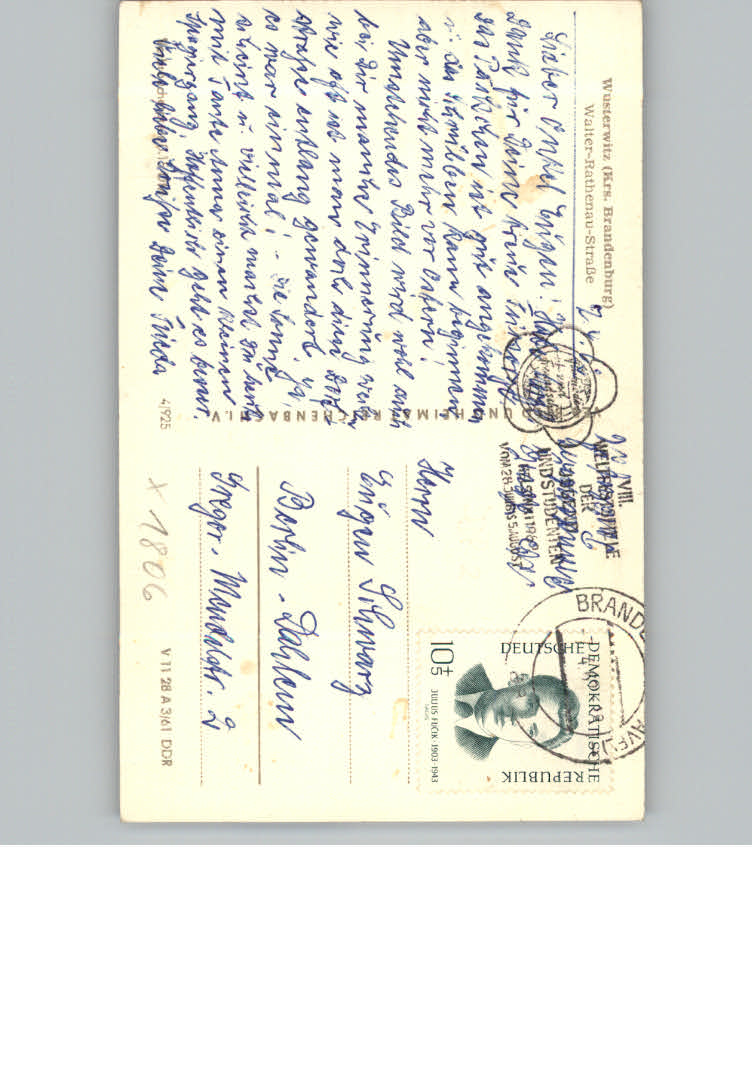 Wusterwitz (Krs. Brandenburg)
Walter-Rathenau-Straße
Lieber Onkel Eugen!
Dank für Deine
das Päckchen ist gut angekommen
u. die kann beginnen
aber nicht mehr vor Ostern!
Umstehendes Bild wird wohl auch
bei Dir manche Erinnerung wecken
wie oft ist man doch diese Dorf-
straße entlang gewandert. Ja,
es war einmal! - Die Sonne
scheint u. vielleicht machst Du heut
mit Tante Anna einen kleinen
Spaziergang. Hoffentlich geht es besser
Viele liebe Deine Frieda
BILD UND HEIMAT REICHENBACH I. V.
4/925
VIII.
WELTFESTSPIELE
DER
JUGEND
UND STUDENTEN
HELSINKI 1962
VOM 28. JULI BIS 5. AUGUST
BRANDENBURG (HAVEL)
DEUTSCHE DEMOKRATISCHE REPUBLIK
10+5
JULIUS FUČIK · 1903-1943
Herrn
Eugen Schwarz
Berlin - Dahlem
Gregor-Mendelstr. 2
X 1806
V 11 28 A 3/61 DDR